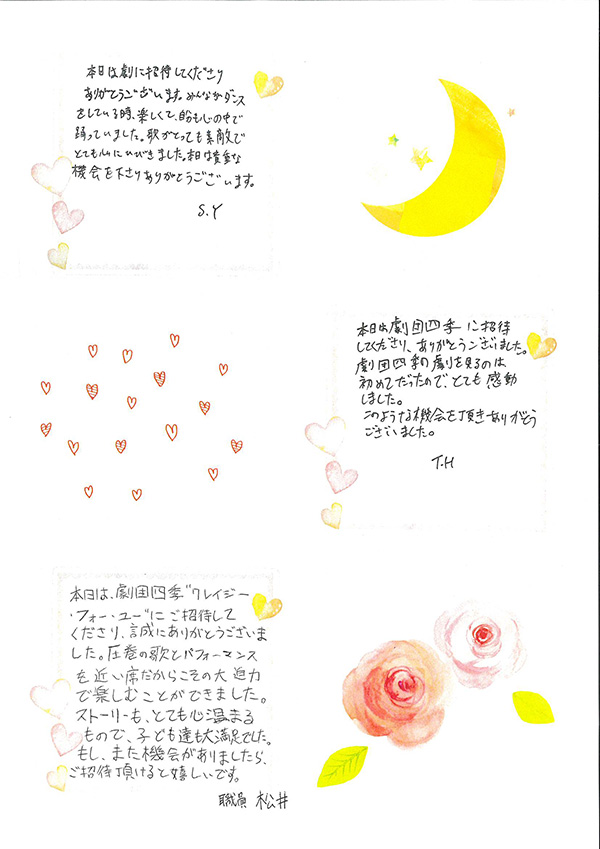 本日は劇に招待してくださり
ありがとうございます。みんながダンス
をしている時、楽しくて、自分も心の中で
踊っていました。歌がとっても素敵で
とても心にひびきました。本日は貴重な
機会を下さりありがとうございます。
S.Y
本日は劇団四季に招待
してくださり、ありがとうございました。
劇団四季の劇を見るのは
初めてだったので、とても感動
しました。
このような機会を頂きありがとう
ございました。
T.H
本日は、劇団四季“クレイジー
・フォー・ユー”にご招待して
くださり、誠にありがとうございま
した。圧巻の歌とパフォーマンス
を近い席だからこその大迫力
で楽しむことができました。
ストーリーも、とても心温まる
もので、子ども達も大満足でした。
もし、また機会がありましたら、
ご招待頂けると嬉しいです。
職員 松井